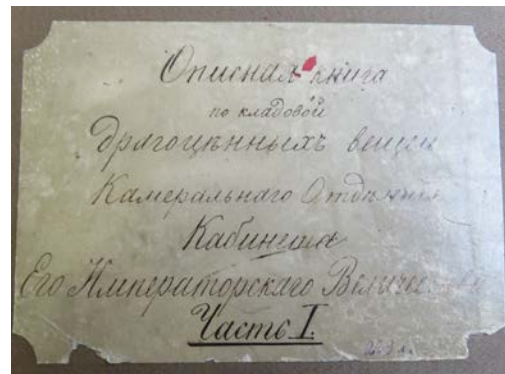 Описная книга
по кладовой
драгоцѣнныхъ вещей
Камеральнаго Отдѣленія
Кабинета
Его Императорскаго Величества
Часть I.